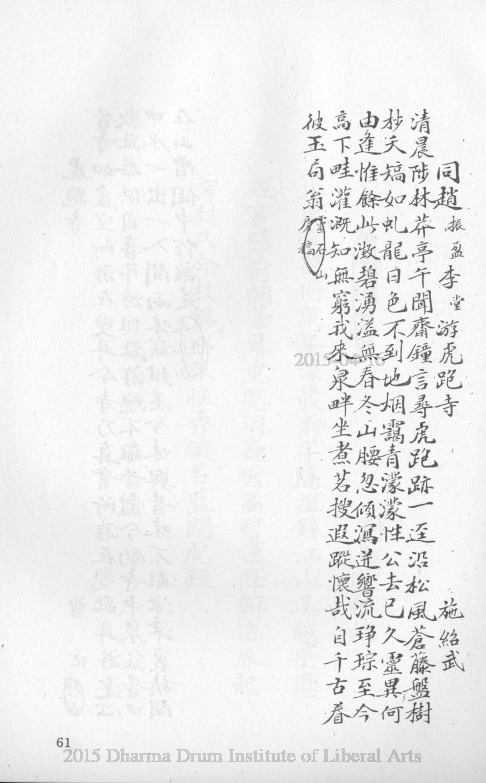 同趙振盈李堂游虎跑寺 施紹武
清晨陟林莽亭午聞齋鐘言尋虎跑跡一逕沿松風蒼藤盤樹
杪夭矯如虬龍日色不到地烟靄青濛濛性公去已久靈異何
由逢惟餘此澂碧湧溢無春冬山腰忽傾瀉迸響流琤琮至今
高下畦灌溉知無窮我來泉畔坐煮茗搜遐蹤懷哉自千古眷
彼玉局翁
2015-04-16
61
2015 Dharma Drum Institute of Liberal Arts